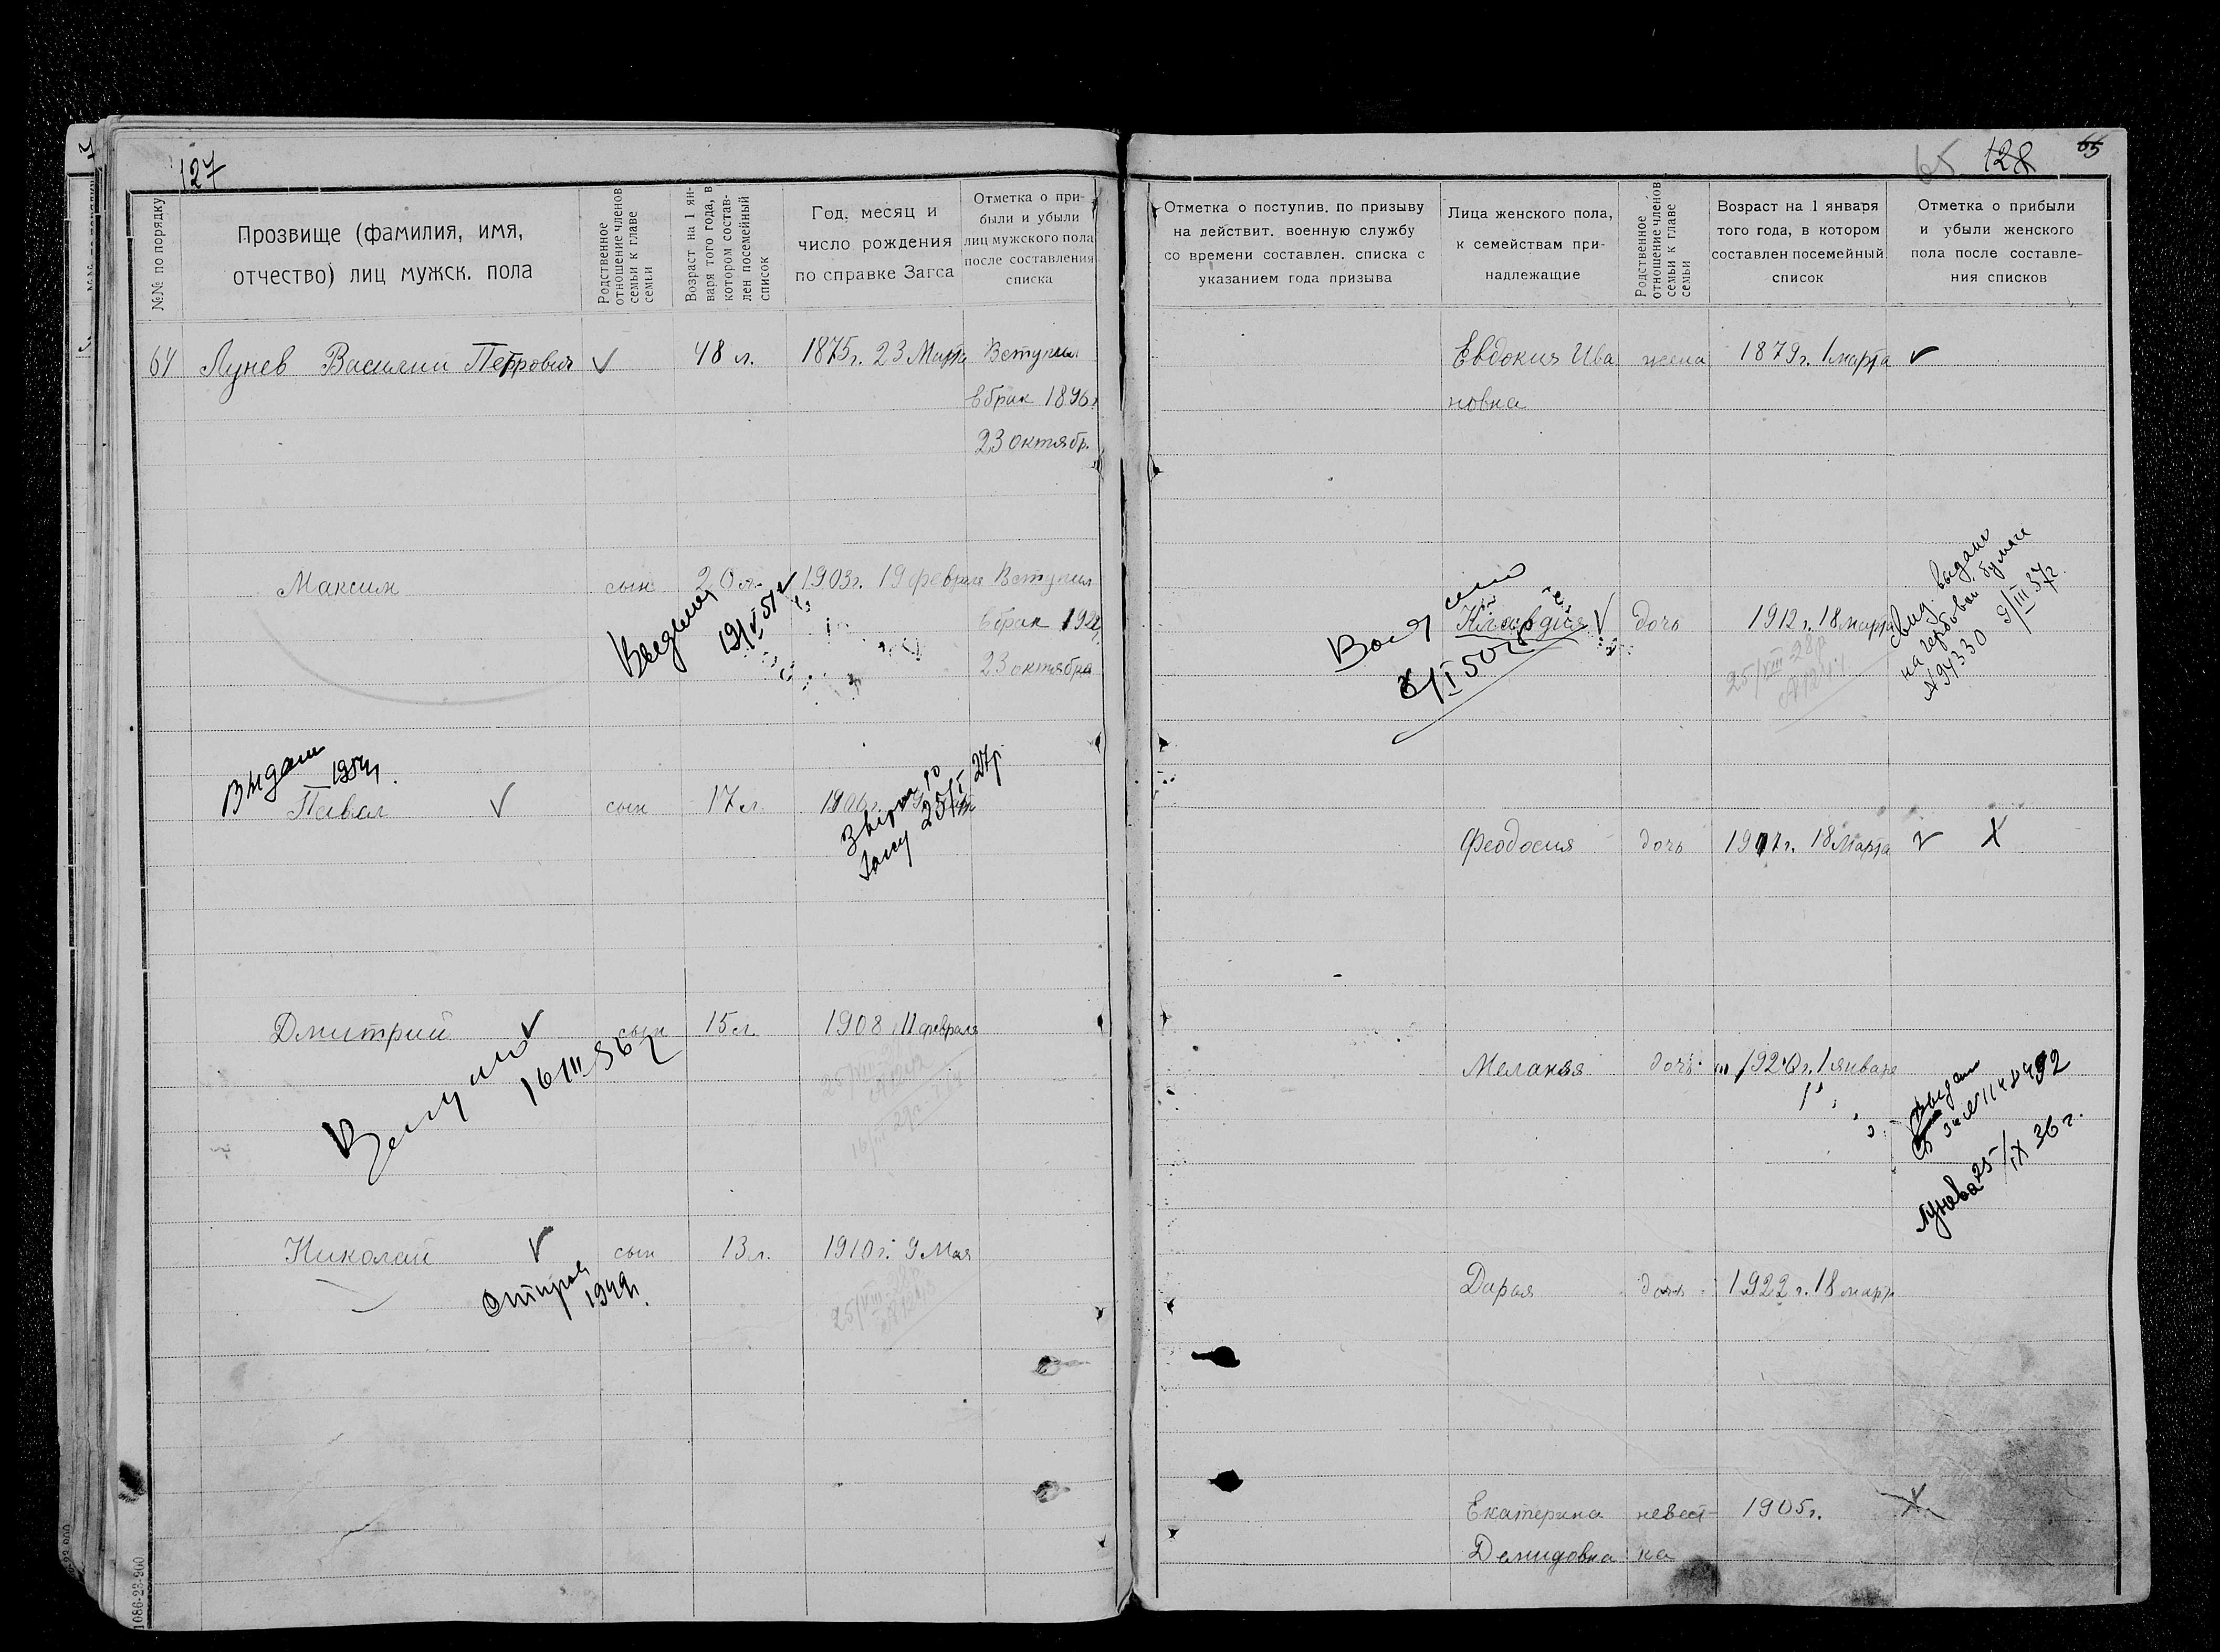 127
№№ по порядку
Прозвище (фамилия, имя,
отчество) лиц мужск. пола
Родственное
отношение членов
семьи к главе
семьи
Возраст на 1 ян-
варя того года, в
котором состав-
лен посемейный
список
Год, месяц и
число рождения
по справке Загса
Отметка о при-
были и убыли
лиц мужского пола
после составления
списка
64 Лунев Василий Петрович 48 л. 1875 г. 23 Марта Вступил
в брак 1896 г.
23 октябр.
Максим сын 20 л. 1903 г. 19 февраля Вступил
в брак 192
23 октября
19/V 51
Видан
1954 г.
Павел сын 17 л. 1906 г.
25/I 27 р.
Дмитрий сын 15 л. 1908 11 февраля
16/III 56 г.
25/VIII-28
Николай сын 13 л. 1910 г. 9 Мая
1949 г.
25/VIII-28 р.
1086-23-900
65 128 65
Отметка о поступив. по призыву
на действит. военную службу
со времени составлен. списка с
указанием года призыва
Лица женского пола,
к семействам при-
надлежащие
Родственное
отношение членов
семьи к главе
семьи
Возраст на 1 января
того года, в котором
составлен посемейный
список
Отметка о прибыли
и убыли женского
пола после составле-
ния списков
Евдокия Ива жена 1879 г. 1 марта
новна
Клавдия дочь 1912 г. 18 марта
/I 50 г.
25/VIII-28 р
свид. выдано
на гербовой бумаге
№ 94330 9/III 37 г.
Феодосия дочь 1917 г. 18 Марта
Мелания дочь 1920 г. 1 января
выдано
25/IX 36 г.
Лунева
Дарья дочь 1922 г. 18 март
Екатерина невест- 1905 г.
Демидовна ка